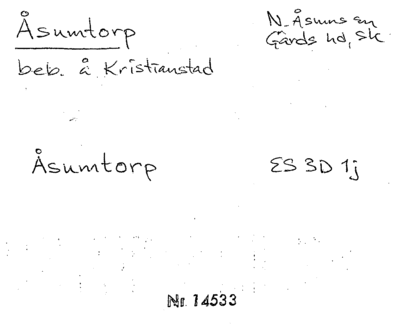 Åsumtorp
N. Åsums sn
Gärds hd, Sk
beb. å Kristianstad
Åsumtorp
ES 3D 1j
Nr 14533